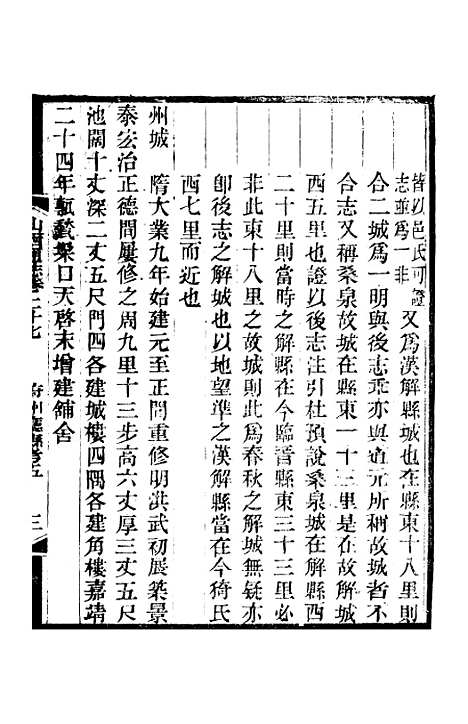 皆以邑氏可證
志並爲一非
又爲漢解縣城也在縣東十八里則
合二城爲一明與後志乖亦與道元所稱故城者不
合志又稱桑泉故城在縣東一十三里是在故解城
西五里也證以後志注引杜預說桑泉城在解縣西
二十里則當時之解縣在今臨晉縣東三十三里必
非此東十八里之故城則此爲春秋之解城無疑亦
卽後志之解城也以地望準之漢解縣當在今猗氏
西七里而近也
州城 隋大業九年始建元至正間重修明洪武初展築景
泰宏治正德間屢修之周九里十三步高六丈厚三丈五尺
池闊十丈深二丈五尺門四各建城樓四隅各建角樓嘉靖
二十四年甎甃梁口天啓末增建舖舍
山西通志卷二十七 府州廳縣考五 三